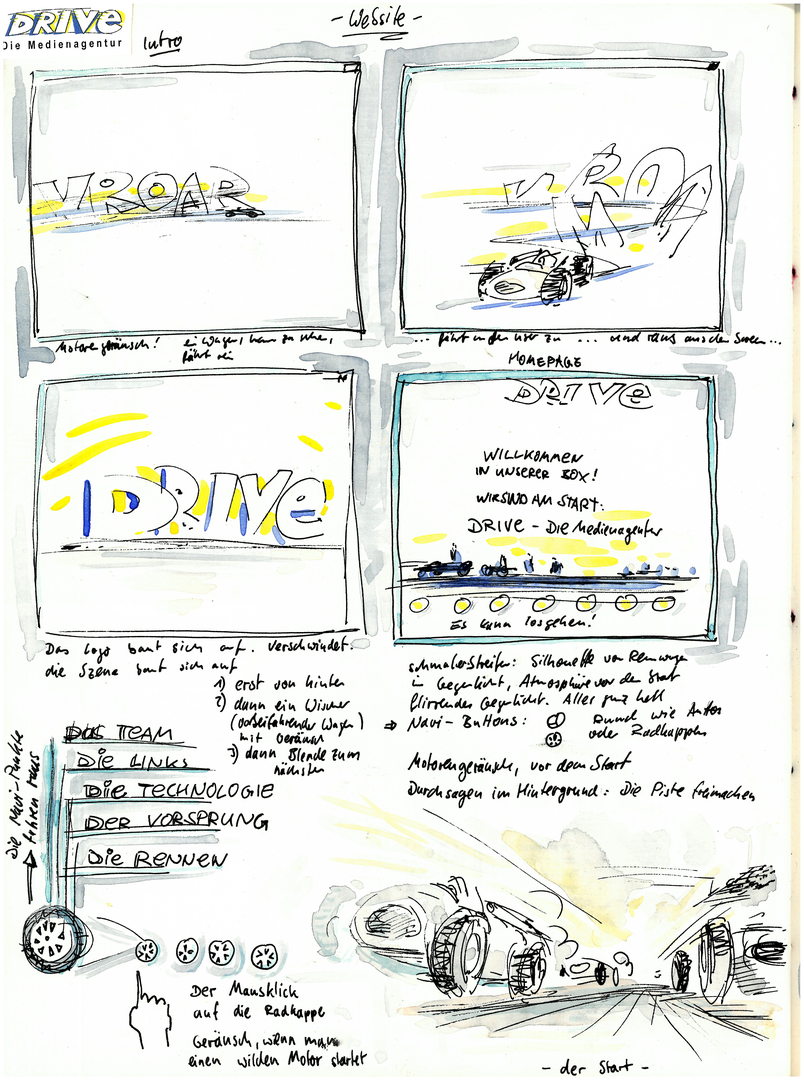 DRIVE
Die Medienagentur
- Website -
Intro
VROAR
VROAM
Motorengeräusch! ein Wagen, kaum zu sehen,
fährt ein
... fährt auf den User zu ... und raus aus dem Screen...
DRIVE
Das Logo baut sich auf. Verschwindet.
die Szene baut sich auf
1) erst von hinten
2) dann ein Wischer
(vorbeifahrender Wagen)
mit Geräusch
3) dann Blende zum
nächsten
HOMEPAGE
DRIVE
WILLKOMMEN
IN UNSERER BOX!
WIR SIND AM START:
DRIVE - Die Medienagentur
Es kann losgehen!
schmaler Streifen: Silhouette von Rennwagen
in Gegenlicht, Atmosphäre vor dem Start
flirrendes Gegenlicht. Alles ganz hell
Navi-Buttons: Rund wie Autos
oder Radkappen
Motorengeräusch, vor dem Start
Durchsagen im Hintergrund: Die Piste freimachen
Die Navi-Punkte
fahren raus
DAS TEAM
Die LINKS
Die TECHNOLOGIE
DER VORSPRUNG
Die RENNEN
Der Mausklick
auf die Radkappe
Geräusch, wenn man
einen wilden Motor startet
- der Start -